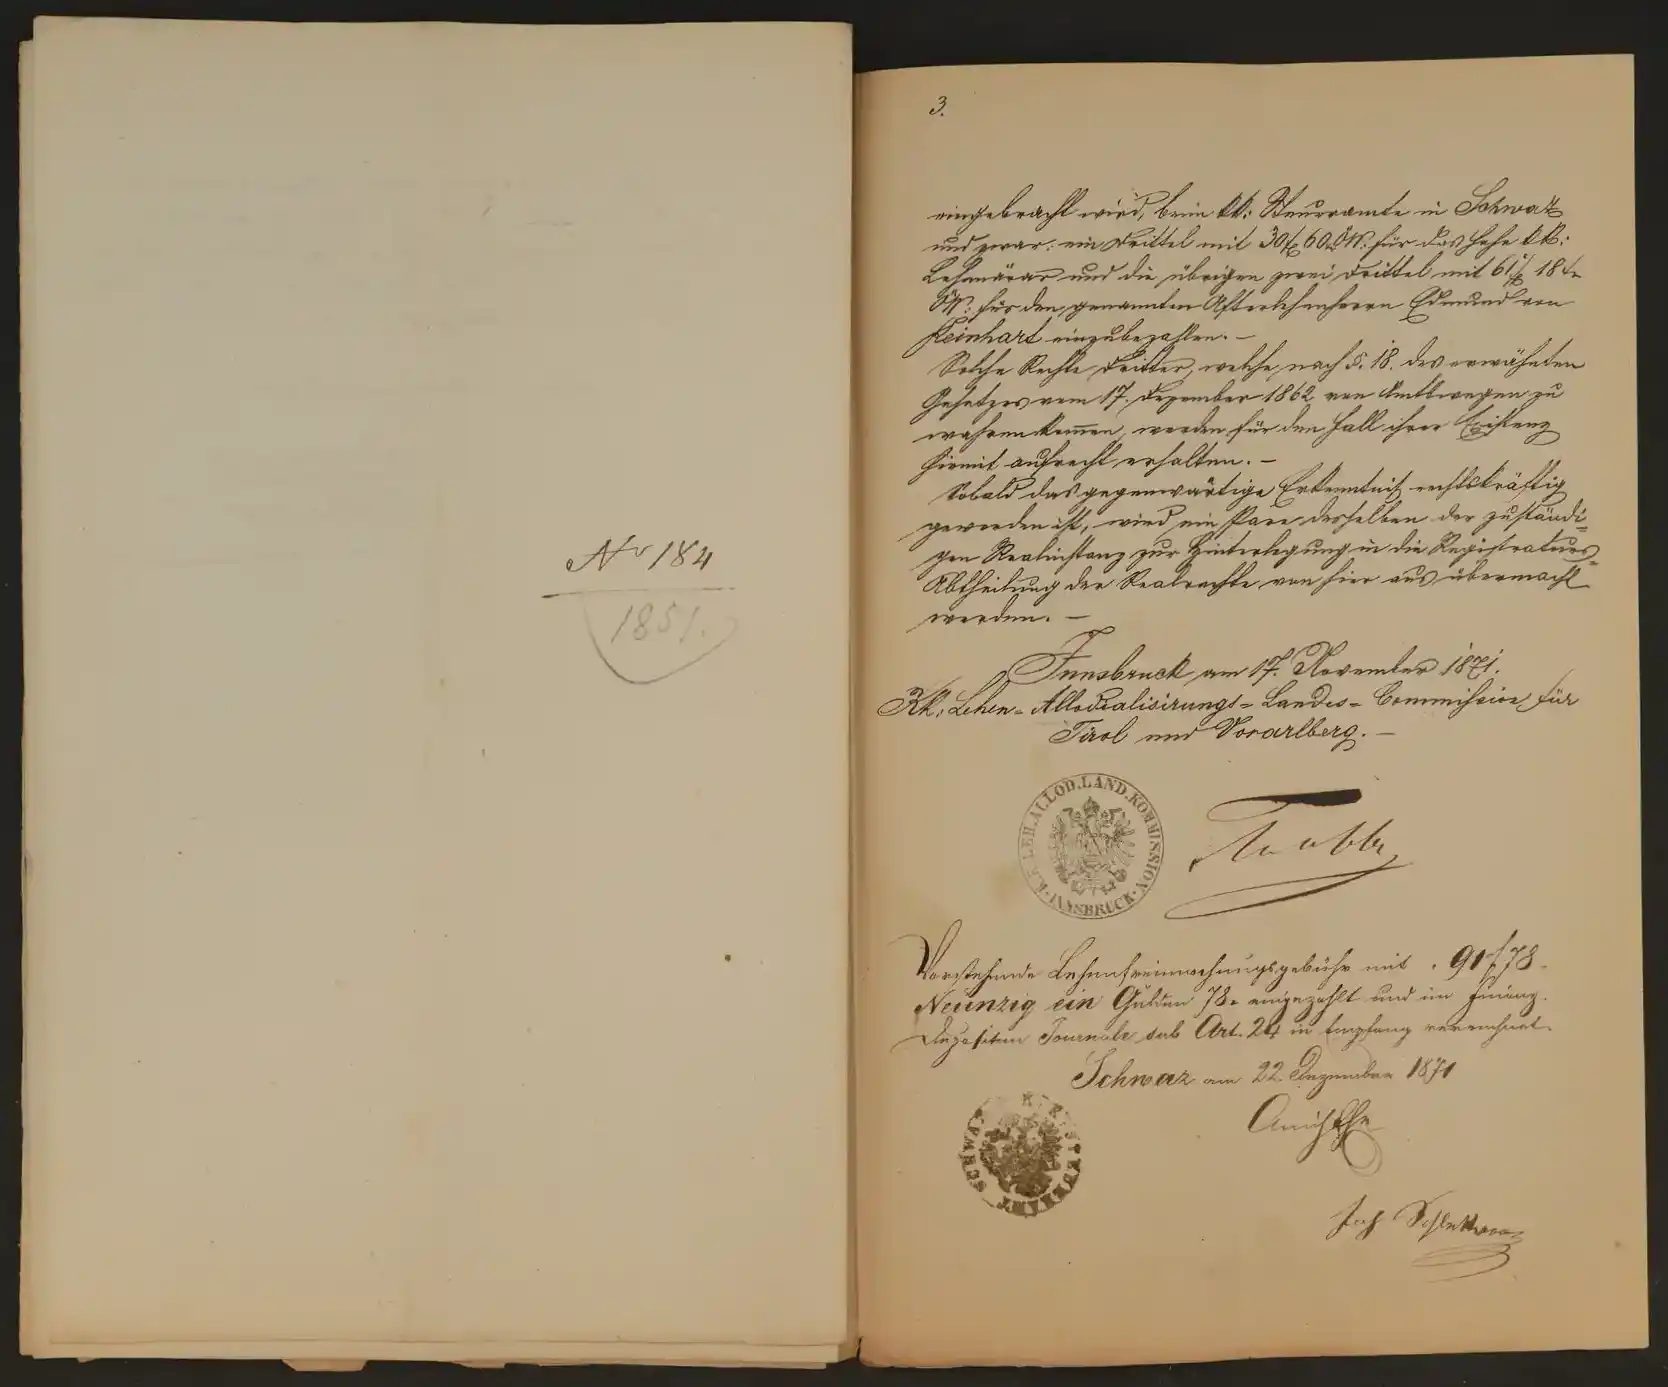 No 184
1851.
3.
eingebracht wird, beim kk: Steueramte in Schwatz
und zwar: ein Drittel mit 30 f 60 ÖW: für das hohe kk:
Lehenärar und die übrigen zwei Drittel mit 61 f 18 x
ÖW: für den genannten Afterlehenherrn Edmund von
Reinhart einzubezahlen. –
Solche Rechte Dritter, welche nach §. 18. des erwähnten
Gesetzes vom 17. Dezember 1862 von Amtswegen zu
wahren kommen, werden für den Fall ihrer Existenz
hiemit aufrecht erhalten. –
Sobald das gegenwärtige Erkenntniß rechtskräftig
geworden ist, wird ein Pare desselben der zuständi=
gen Realinstanz zur Hinterlegung in die Registraturs=
Abtheilung der Realrechte von hier aus übermacht
werden. –
Innsbruck am 17. November 1871.
Kk: Lehen= Allodialisirungs= Landes= Commission für
Tirol und Vorarlberg. –
K.K. LEH. ALLOD. LAND. KOMMISSION. INNSBRUCK.
Vorstehende Lehenfreimachungsgebühr mit . 91 f 78
Neunzig ein Gulden 78 eingezahlt und im Finanz
Depositen Journale sub Art. 24 in Empfang verrechnet.
Schwaz am 22 Dezember 1871
K. K. STEUERAMT SCHWAZ